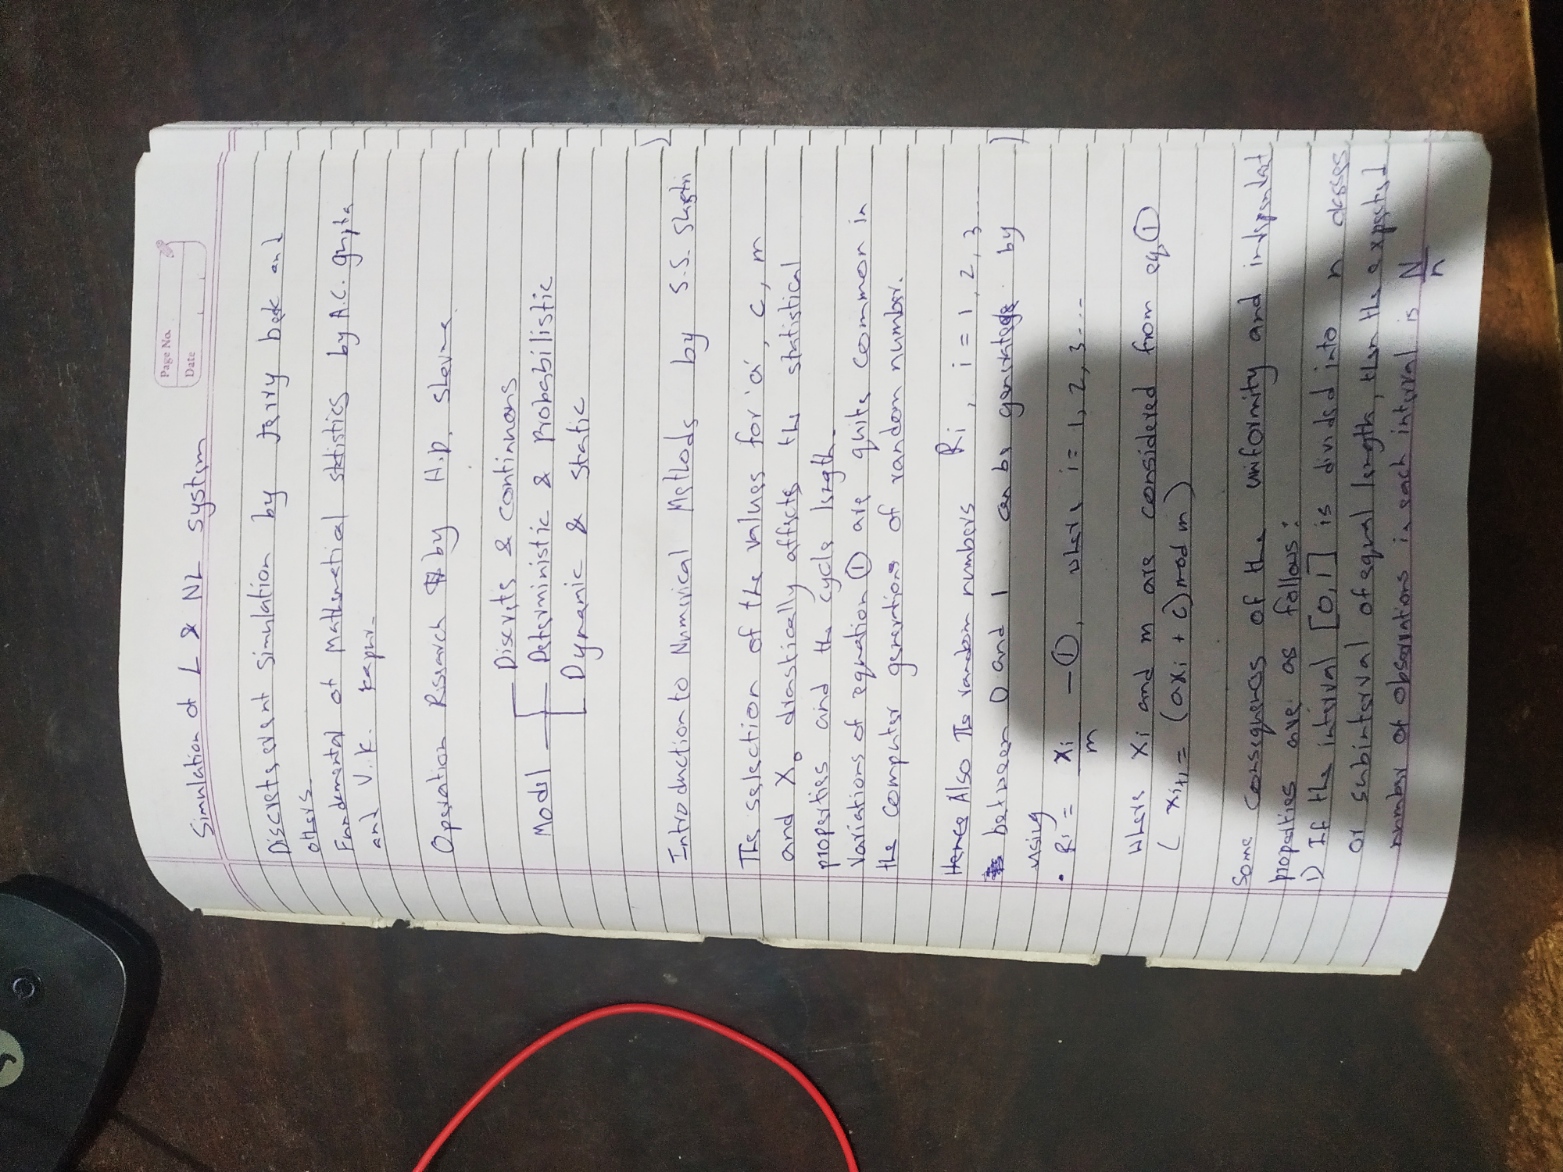 Page No.
Date
Simulation of L & NL system
Discrete event simulation by Jerry bank and
others.
Fundemental of Mathematical statistics by A.C. gupta
and V.K. Kapur.
Operation Research by H.D. Sharma
Discrete & continuous
Model
Deterministic & Probabilistic
Dynamic & static
Introduction to Numerical Methods by S.S. Shastri
The selection of the values for 'a', c, m
and X₀ drastically affects the statistical
properties and the cycle length.
Variations of equation ① are quite common in
the computer generations of random number.
Hence Also The random numbers Ri, i = 1, 2, 3
between 0 and 1 can be generated by
using
• Ri = xi/m - ①, where i = 1, 2, 3...
where xi and m are considered from eq ①
( xi+1 = (axi + c) mod m )
Some consequences of the uniformity and independent
properties are as follows:
1) If the interval [0,1] is divided into n classes
or subinterval of equal length, then the expected
number of observations in each interval is N/n